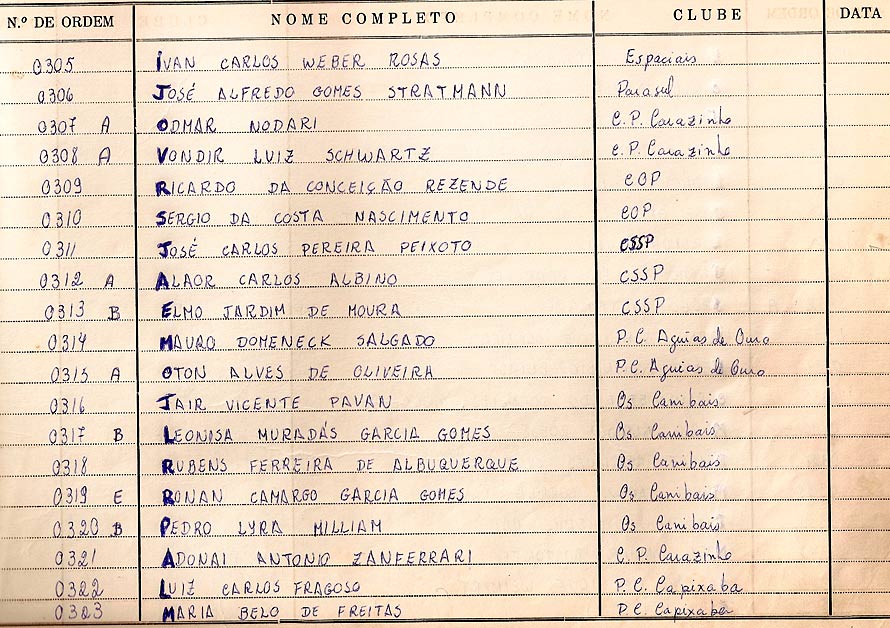 N.º DE ORDEM NOME COMPLETO CLUBE DATA
0305 IVAN CARLOS WEBER ROSAS Espaciais
0306 JOSÉ ALFREDO GOMES STRATMANN Parasul
0307 A ODMAR NODARI C.P. Carazinho
0308 A VONDIR LUIZ SCHWARTZ C.P. Carazinho
0309 RICARDO DA CONCEIÇÃO REZENDE COP
0310 SERGIO DA COSTA NASCIMENTO COP
0311 JOSÉ CARLOS PEREIRA PEIXOTO CSSP
0312 A ALAOR CARLOS ALBINO CSSP
0313 B ELMO JARDIM DE MOURA CSSP
0314 MAURO DOMENECK SALGADO P.C. Aguias de Ouro
0315 A OTON ALVES DE OLIVEIRA P.C. Aguias de Ouro
0316 JAIR VICENTE PAVAN Os Canibais
0317 B LEONISA MURADÁS GARCIA GOMES Os Canibais
0318 RUBENS FERREIRA DE ALBUQUERQUE Os Canibais
0319 E RONAN CAMARGO GARCIA GOMES Os Canibais
0320 B PEDRO LYRA MILLIAM Os Canibais
0321 ADONAI ANTONIO ZANFERRARI C.P. Carazinho
0322 LUIZ CARLOS FRAGOSO P.C. Capixaba
0323 MARIA BELO DE FREITAS P.C. Capixaba